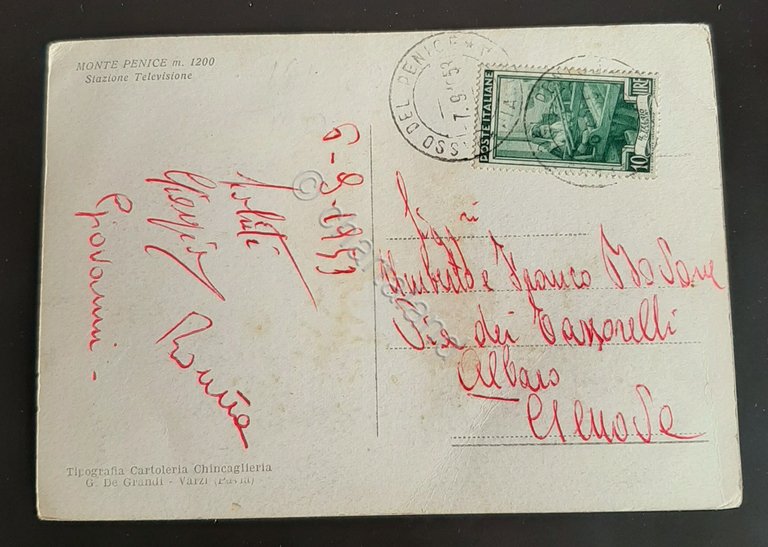 MONTE PENICE m. 1200
Stazione Televisione
6-9-1953
Saluti
Giorgio
Giovanni -
PASSO DEL PENICE
7.9.53
POSTE ITALIANE
LIRE
10
Sigg.ri
Umberto e Franco
Via dei
Albaro
Genova
Tipografia Cartoleria Chincaglieria
G. De Grandi - Varzi (Pavia)